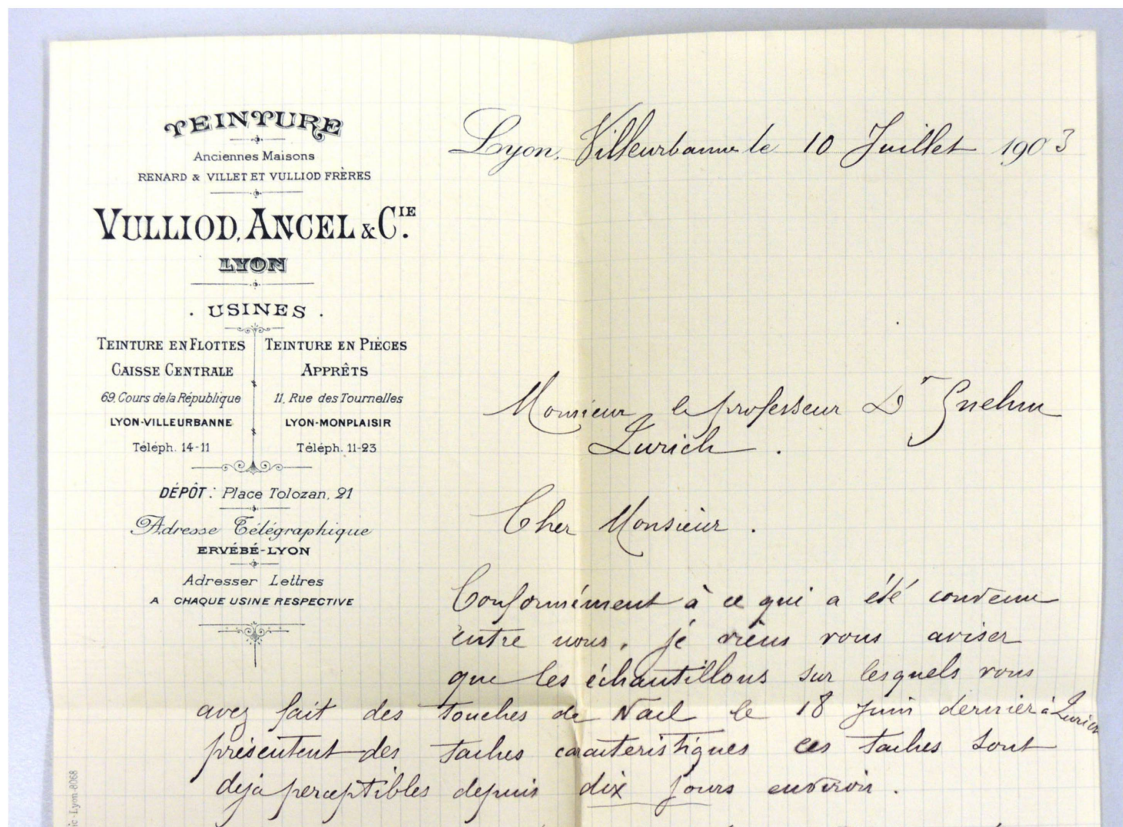 TEINTURE
Anciennes Maisons
RENARD & VILLET ET VULLIOD FRÈRES
VULLIOD, ANCEL & CIE.
LYON
. USINES .
TEINTURE EN FLOTTES
CAISSE CENTRALE
69, Cours de la République
LYON-VILLEURBANNE
Téléph. 14-11
TEINTURE EN PIÈCES
APPRÊTS
11, Rue des Tournelles
LYON-MONPLAISIR
Téléph. 11-23
DÉPÔT: Place Tolozan, 21
Adresse Télégraphique
ERVÉBÉ-LYON
Adresser Lettres
A CHAQUE USINE RESPECTIVE
Lyon, Villeurbanne le 10 Juillet 1903
Monsieur le professeur Dr Gnehm
Zurich.
Cher Monsieur.
Conformément à ce qui a été convenu
entre nous, je viens vous aviser
que les échantillons sur lesquels vous
avez fait des touches de Nacl le 18 juin dernier à Zurich
présentent des taches caracteristiques ces taches sont
dejà perceptibles depuis dix jours environ.
Lyon-8068